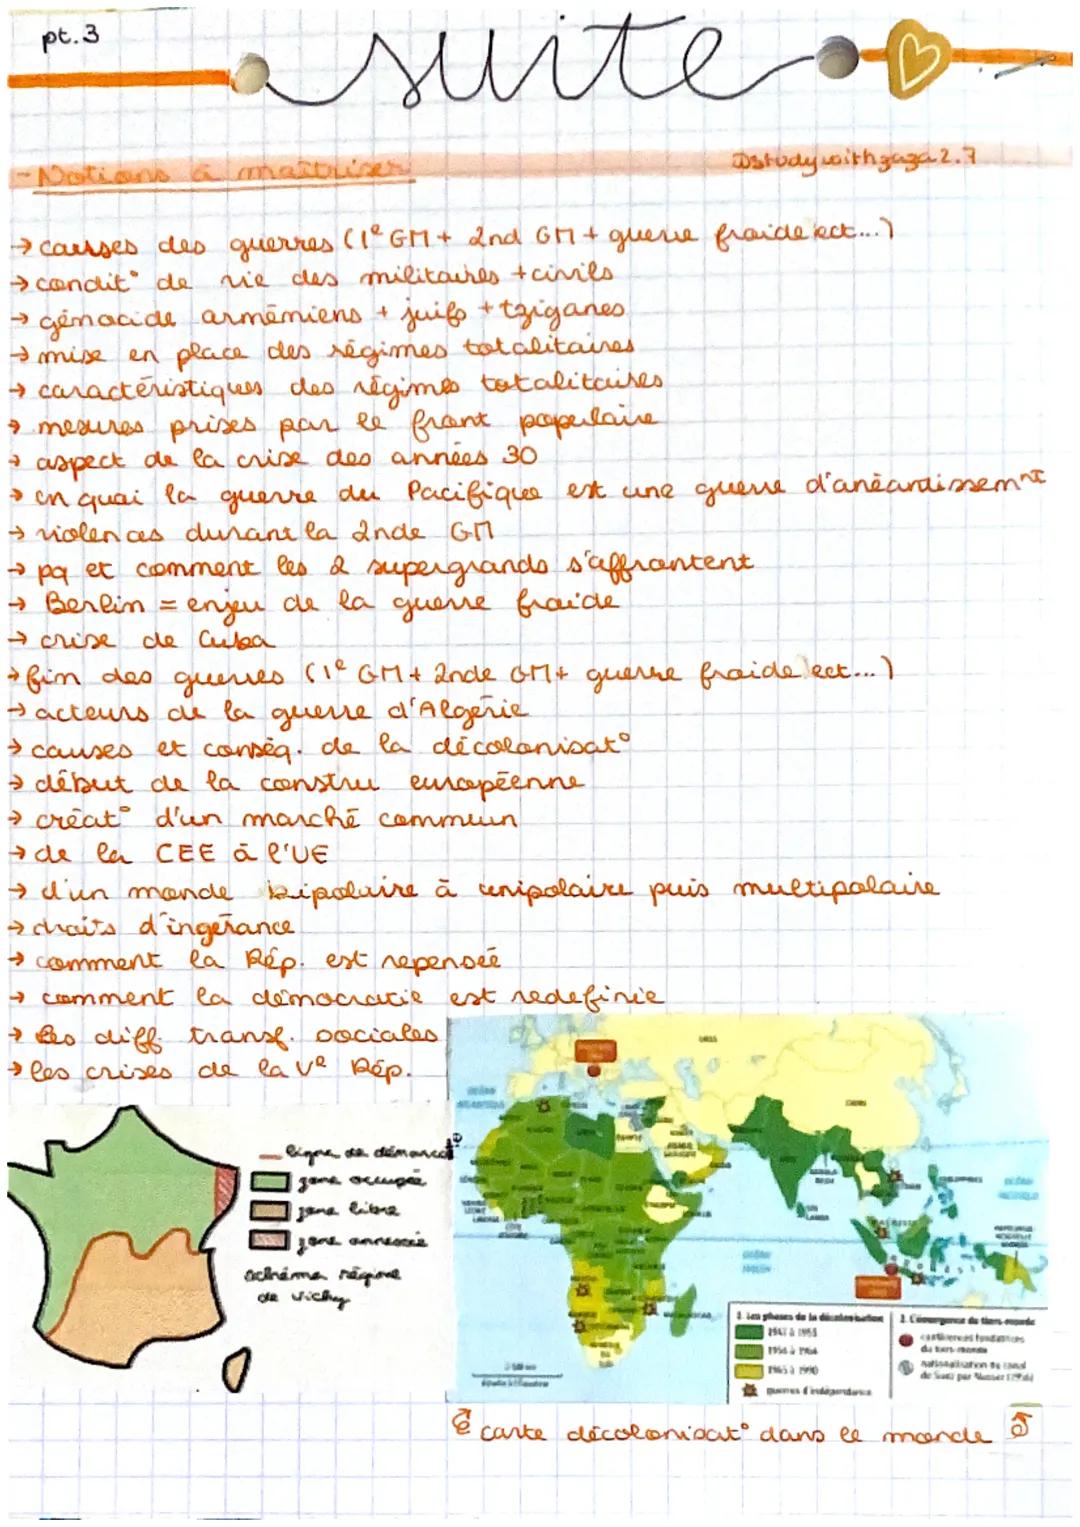 pt.3
suite
- Notions à maîtriser
@studywithzaza2.7
→ causes des guerres (1e GM + 2nd GM + guerre froide ect...)
→ condit° de vie des militaires + civils
→ génocide arméniens + juifs + tziganes
→ mise en place des régimes totalitaires
→ caractéristiques des régimes totalitaires
→ mesures prises par le front populaire
→ aspect de la crise des années 30
→ en quoi la guerre du Pacifique est une guerre d'anéantissemnt
→ violences durant la 2nde GM
→ pq et comment les 2 supergrands s'affrontent
→ Berlin = enjeu de la guerre froide
→ crise de Cuba
→ fin des guerres (1e GM + 2nde GM + guerre froide ect...)
→ acteurs de la guerre d'Algérie
→ causes et conséq. de la décolonisat°
→ début de la constru européenne
→ créat° d'un marché commun
→ de la CEE à l'UE
→ d'un monde bipolaire à unipolaire puis multipolaire
→ droits d'ingérance
→ comment la Rép. est repensée
→ comment la démocratie est redefinie
→ les diff. transf. sociales
→ les crises de la Ve Rép.
ligne de démarcat°
zone occupée
zone libre
zone annexée
schéma régime
de Vichy
URSS
CHINE
OCÉAN
ATLANTIQUE
OCÉAN
INDIEN
SRI
LANKA
1. Les phases de la décolonisation
1947 à 1955
1956 à 1964
1965 à 1990
guerres d'indépendance
2. L'émergence du tiers-monde
conférences fondatrices
du tiers-monde
nationalisation du canal
de Suez par Nasser (1956)
carte décolonisat° dans le monde